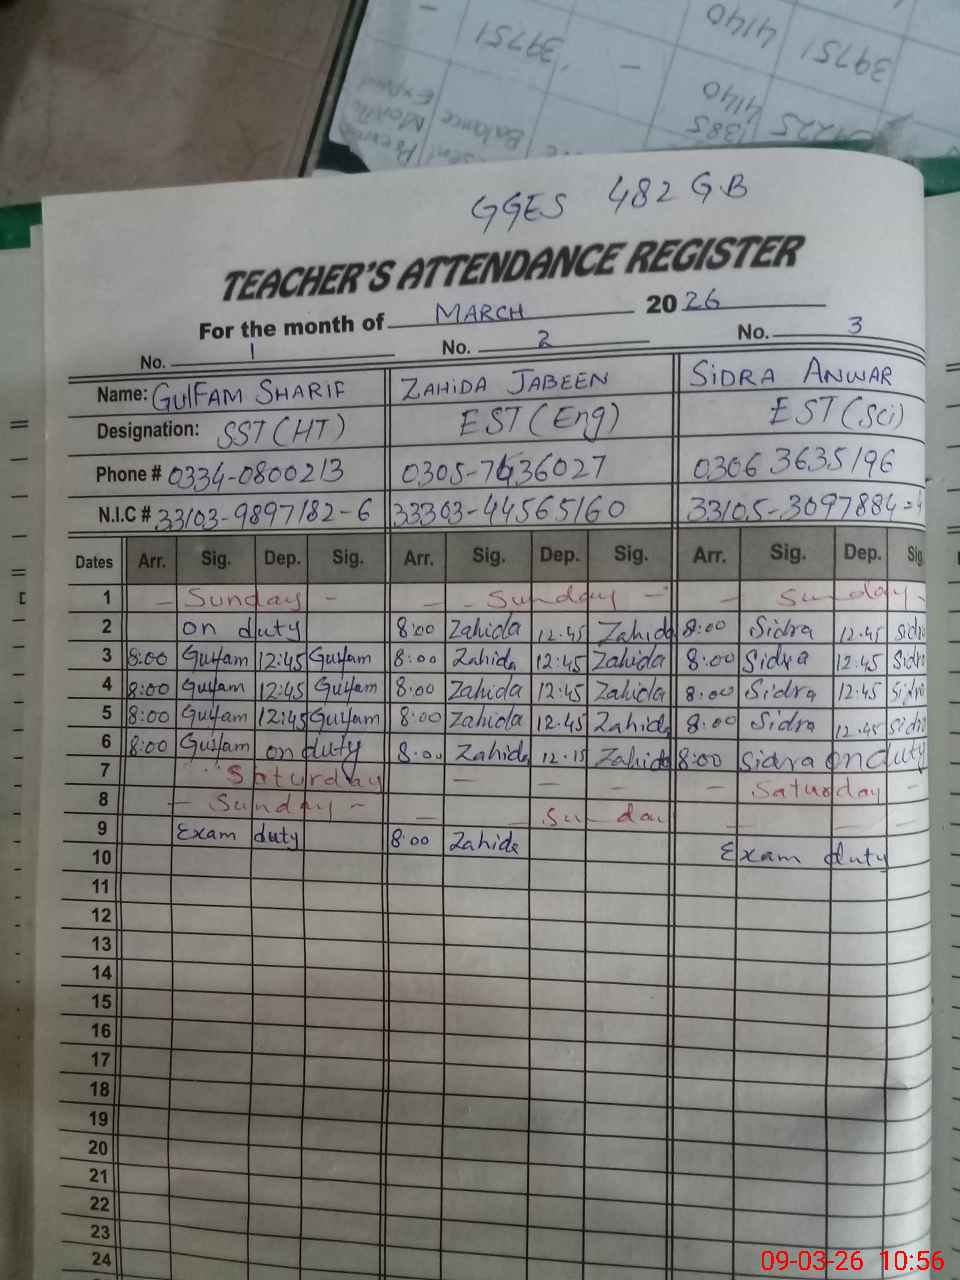 39751 4140 39751
4140
1385 5
Balance
GGES 482 GB
TEACHER'S ATTENDANCE REGISTER
For the month of MARCH 2026
No. 1 No. 2 No. 3
Name: GulFAM SHARIF ZAHiDA JABEEN SiDRA ANWAR
Designation: SST (HT) EST (Eng) EST (Sci)
Phone # 0334-0800213 0305-7436027 0306 3635196
N.I.C # 33103-9897182-6 33303-44565160 33105-3097884=4
Dates Arr. Sig. Dep. Sig. Arr. Sig. Dep. Sig. Arr. Sig. Dep. Sig
1 - Sunday - - - Sunday - - Sunday -
2 on duty 8:00 Zahida 12:45 Zahida 8:00 Sidra 12:45 Sidra
3 8:00 Gulfam 12:45 Gulfam 8:00 Zahida 12:45 Zahida 8:00 Sidra 12:45 Sidra
4 8:00 Gulfam 12:45 Gulfam 8:00 Zahida 12:45 Zahida 8:00 Sidra 12:45 Sidra
5 8:00 Gulfam 12:45 Gulfam 8:00 Zahida 12:45 Zahida 8:00 Sidra 12:45 Sidra
6 8:00 Gulfam on duty 8:00 Zahida 12:15 Zahida 8:00 Sidra on duty
7 Saturday - - - - Saturday -
8 - Sunday - - - Sunday - - -
9 Exam duty 8:00 Zahida Exam duty
10
11
12
13
14
15
16
17
18
19
20
21
22
23
24
09-03-26 10:56